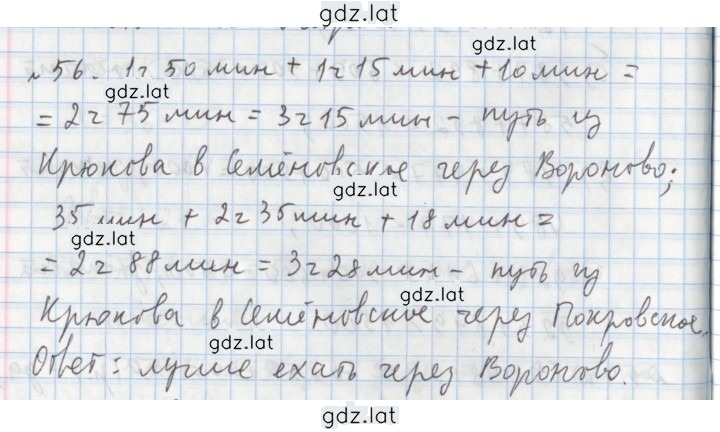 gdz.lat
№56. 1ч 50 мин + 1ч 15 мин + 10 мин =
gdz.lat
= 2ч 75 мин = 3ч 15 мин - путь из
Крюкова в Семёновское через Вороново;
gdz.lat
35 мин + 2ч 35 мин + 18 мин =
gdz.lat
= 2ч 88 мин = 3ч 28 мин - путь из
gdz.lat
Крюкова в Семёновское через Покровское.
gdz.lat
Ответ: лучше ехать через Вороново.
gdz.lat